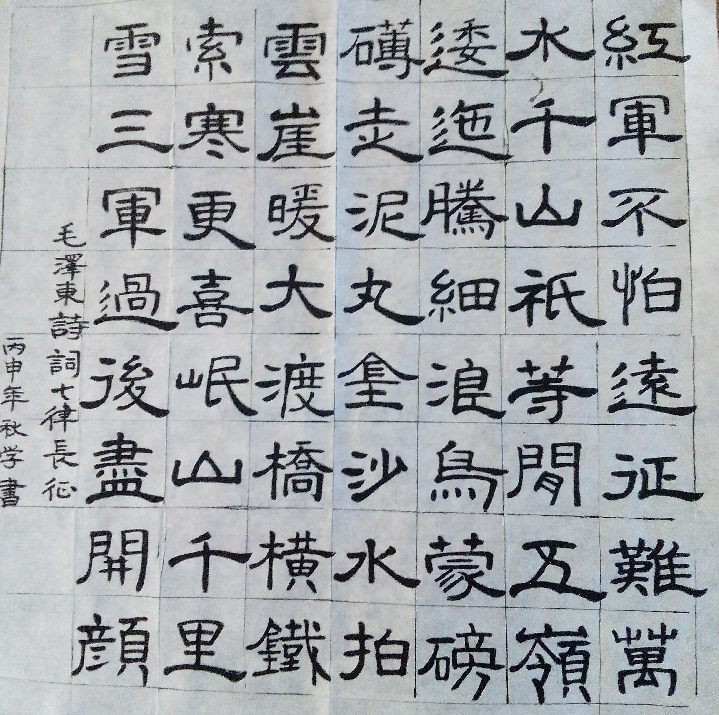 紅軍不怕遠征難萬
水千山祇等閒五嶺
逶迤騰細浪鳥蒙磅
礴走泥丸金沙水拍
雲崖暖大渡橋橫鐵
索寒更喜岷山千里
雪三軍過後盡開顔
毛澤東詩詞七律長征
丙申年秋学書